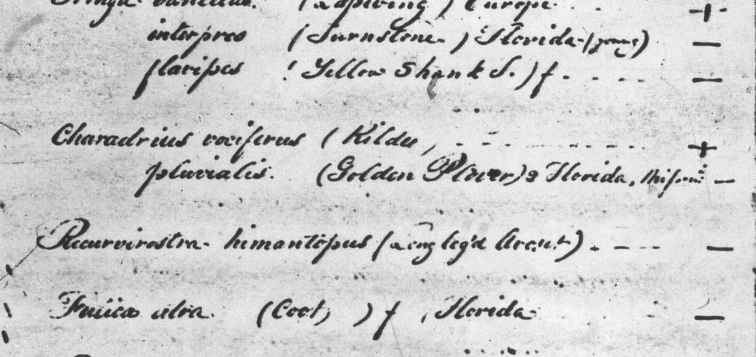 Tringa vanellus. (Lapwing) Europe - +
interpres (Turnstone.) Florida (young) —
flavipes (Yellow Shanks.) f. —
Charadrius vociferus (Kildee, +
pluvialis. (Golden Plover) Florida, —
Recurvirostra himantopus (Long leg'd Avoset). —
Fulica atra (Coot, ) f , Florida —